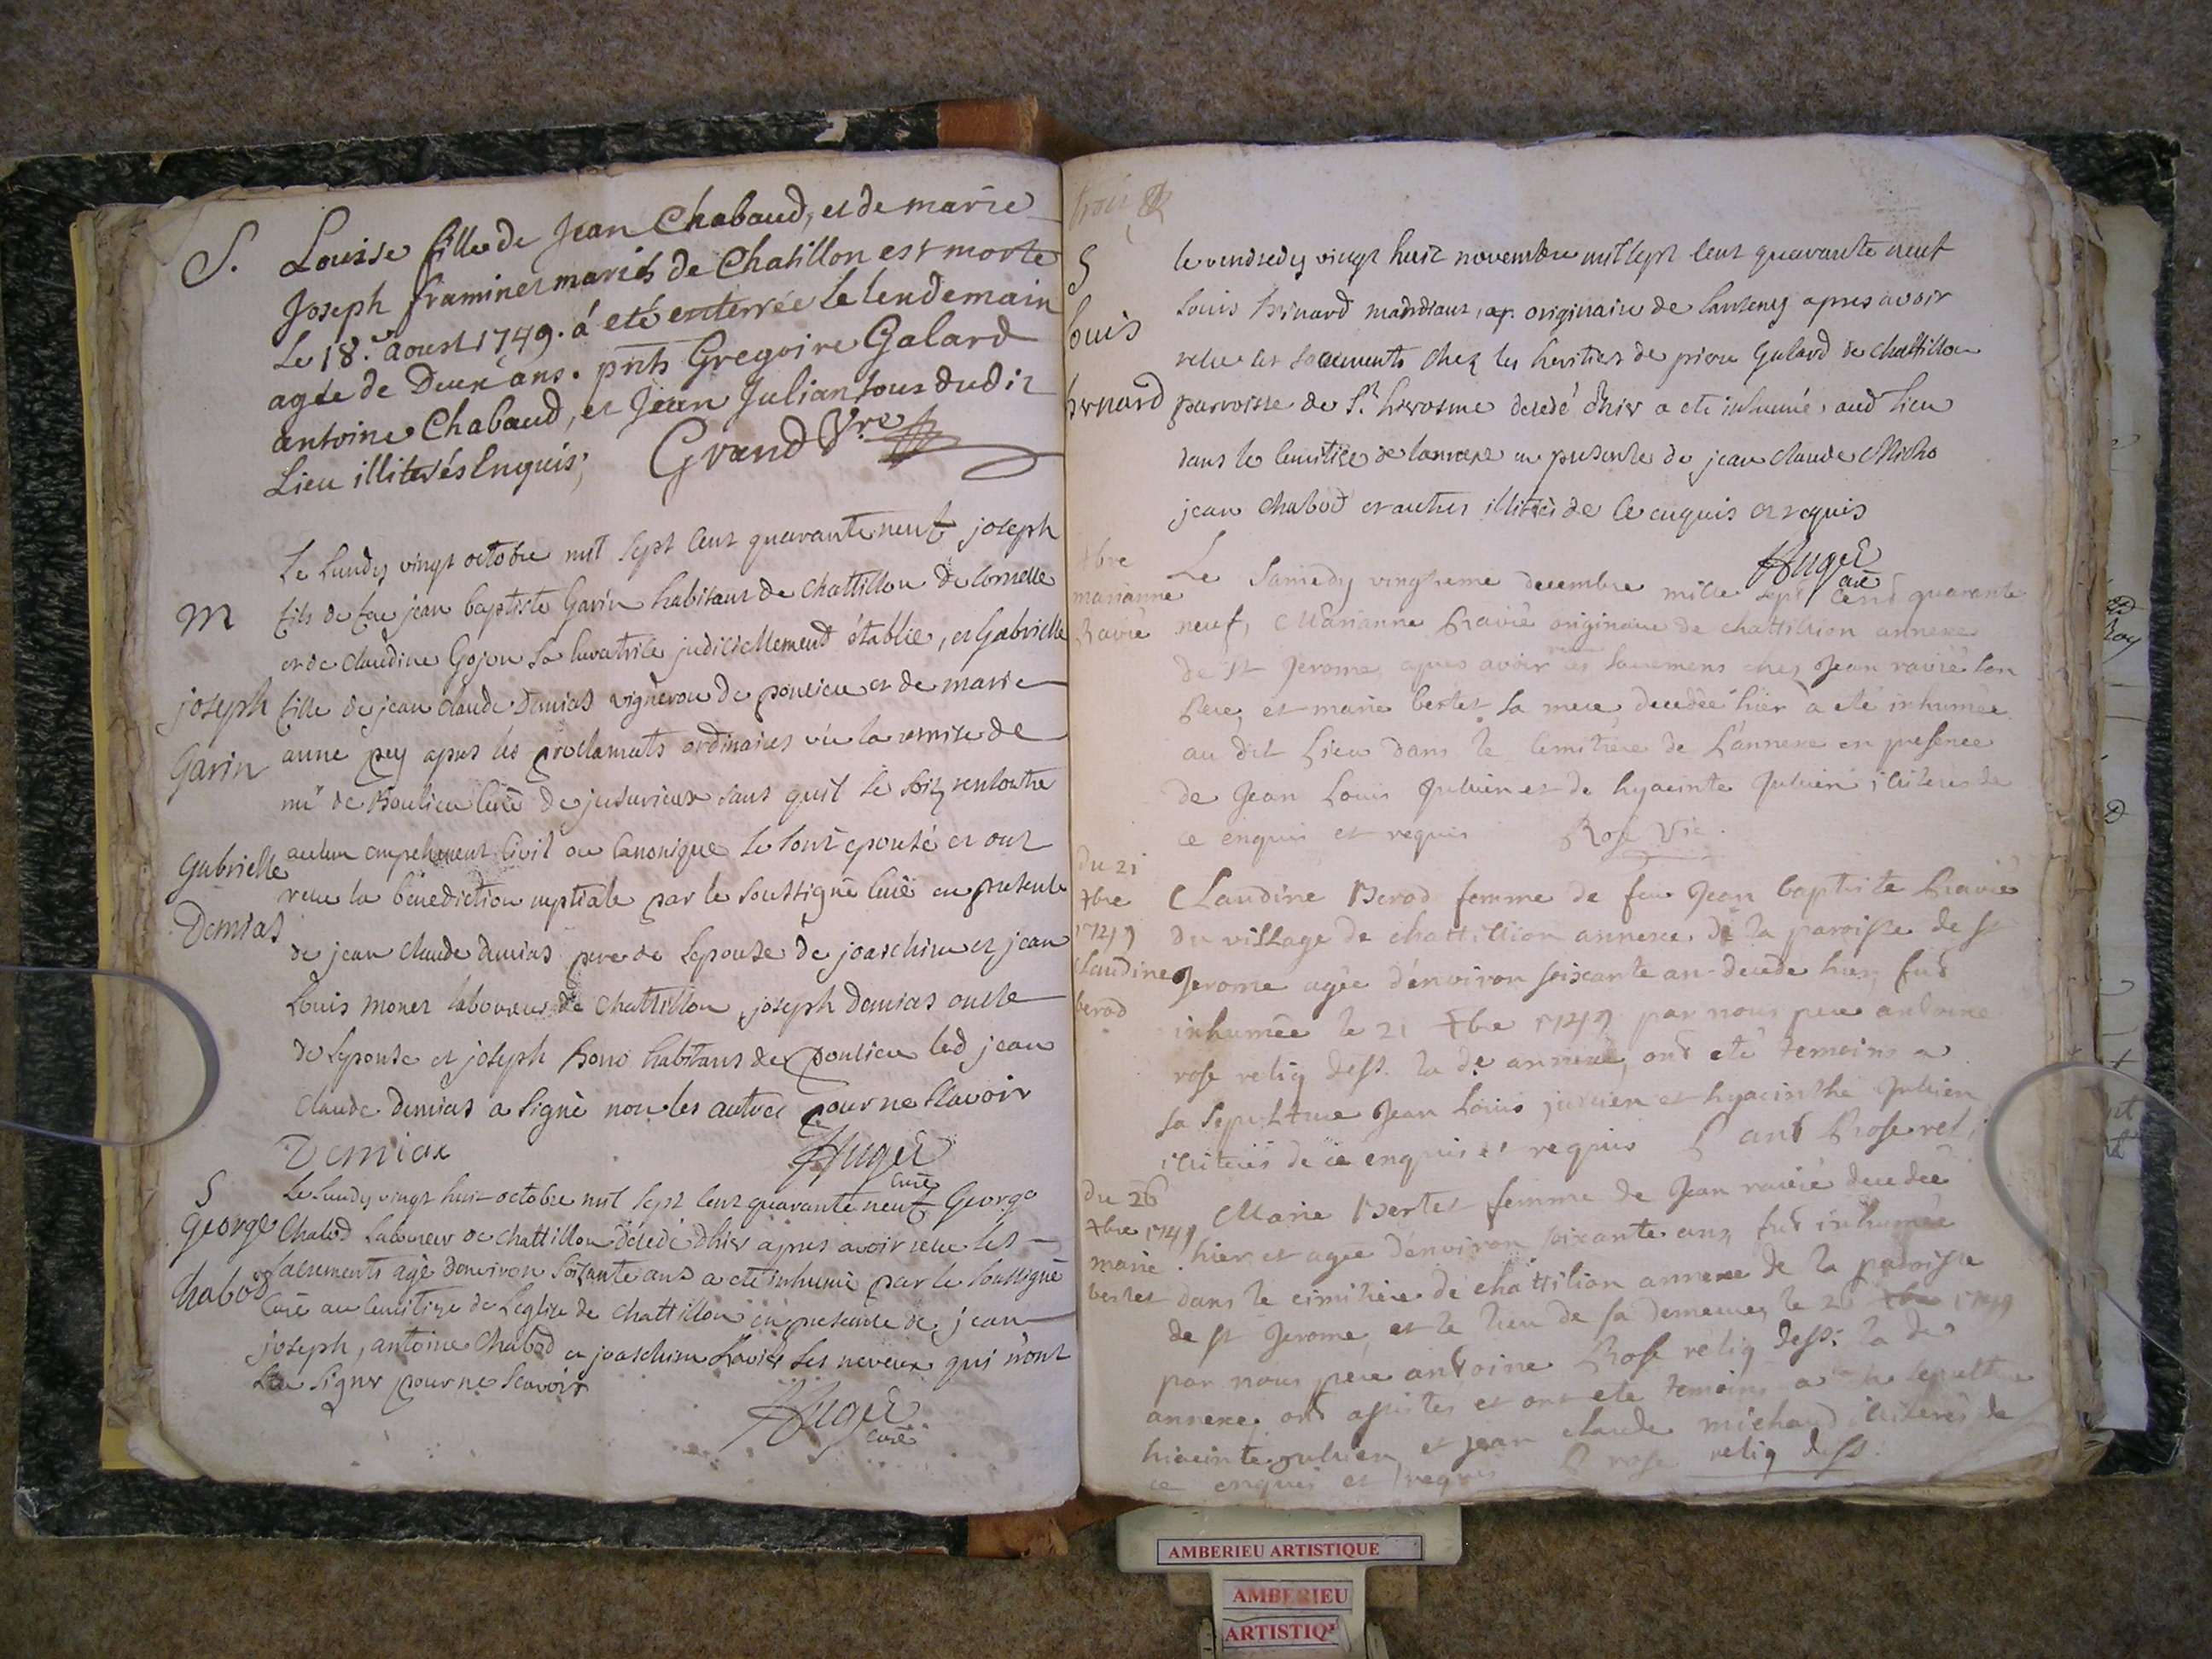 S. Louise fille de Jean Chabaud, et de marie
Joseph framinet mariés de Chatillon est morte
Le 18.e aoust 1749. á eté enterrée Le lendemain
agée de Deux ans. pnts Gregoire Galard
antoine Chabaud, et Jean Julian tous dudit
Lieu illiterés Enquis; Grand Vre
Le Lundy vingt octobre mil sept cent quarante neuf joseph
M
fils de feu jean baptiste Garin habitant de Chattillon de Cornelle
et de Claudine Gojon sa curatrice judiciellement établie, et Gabrielle
joseph
fille de jean claude Demias vigneron de poncieu et de marie
Garin
anne pey apres les proclamats ordinaires vû la remise de
mr de curé de jusurieux sans quil se soit rencontré
Gabrielle
aucun empechement Civil ou Canonique se sont epousé et ont
Demias
recu la bénédiction nuptiale par le soussigné Curé en presence
de jean Claude demias pere de Lepouse de joaschim et jean
Louis monet laboureurs de Chattillon, joseph demias oncle
de Lepouse et joseph bono habitans de poncieu led jean
Claude demias a signé non les autres pour ne scavoir
Demiax Huger
Curé
S
Le Lundy vingt huit octobre mil sept cent quarante neuf George
George
Chabod Laboureur de Chattillon décédé dhier apres avoir recu les
Chabod
sacrements agé denviron soixante ans a eté inhumé par le soussigné
Curé au Cemitire de Leglise de Chattillon en presence de jean
joseph, antoine Chabod et joaschim Ravier ses neveux qui nont
sceu signer pour ne scavoir
Huger
Curé
S
le vendredy vingt huit novembre mil sept cent quarante neuf
Louis
Louis binard mandiant, originaire de Lantenay apres avoir
recu les sacrements chez les heritiers de pierre Galard de chattillon
bernard
parroisse de St hierosme decedé dhier a eté inhumé aud lieu
dans le Cemitire de Lannexe en presence de jean claude Micho
jean Chabod et autres illitérés de ce enquis et requis
Huger
curé
xbre
marianne
Ravié
Le Samedy vingtieme decembre mille sept Cent quarante
neuf, Marianne Ravié originaire de chattillion annexe
de St Jerome, apres avoir les Sacremens chez Jean ravié son
Pere, et marie bertet sa mere, decedée hier a eté inhumée
au dit Lieu dans le Cemitiere de L'annexe en presence
de Jean Louis Juluin et de hyacinte Juluin illiteres de
ce enquis et requis Rose Vic.
du 21
xbre
1749
Claudine
berod
Claudine Berod femme de feu Jean baptiste Ravié
du village de chattillion annexe de la paroisse de St
Jerome agée d'environ soixante an decede hier, fut
inhumée le 21 xbre 1749 par nous pere antoine
rose relig dess. la de annexe, ont eté temoins a
sa Sepulture Jean Louis julien et hyacinthe Julien
illiterés de ce enquis et requis P ant Rose rel
du 26
xbre 1749
marie
bertet
Marie Bertet femme de Jean ravié decedée
hier et agée d'environ soixante ans, fut inhumée
dans le cimitiere de chattilion annexe de la paroisse
de st Jerome, et le lieu de sa demeure, le 26 xbre 1749
par nous pere antoine Rose relig dess: la de
annexe, ont assistes et ont eté temoins a la sepulture
hiacinte Julien, et jean claude michaud illiterés de
ce enquis et requis P rose relig dess.
AMBERIEU ARTISTIQUE
AMBERIEU
ARTISTIQ